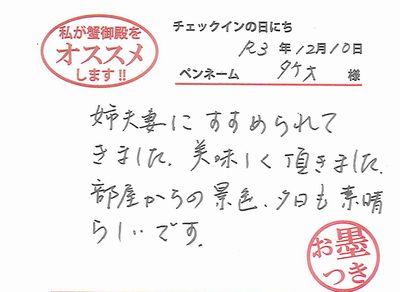 私が蟹御殿を
オススメ
します!!
チェックインの日にち
R3 年 12月 10日
ペンネーム タケオ 様
姉夫妻にすすめられて
きました。美味しく頂きました。
部屋からの景色、夕日も素晴
らしいです。
お墨
つき